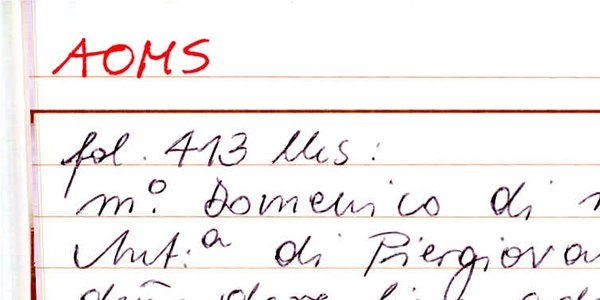 AOMS
fol. 413
m.º Domenico di
Ant.ª di Piergiova
dare